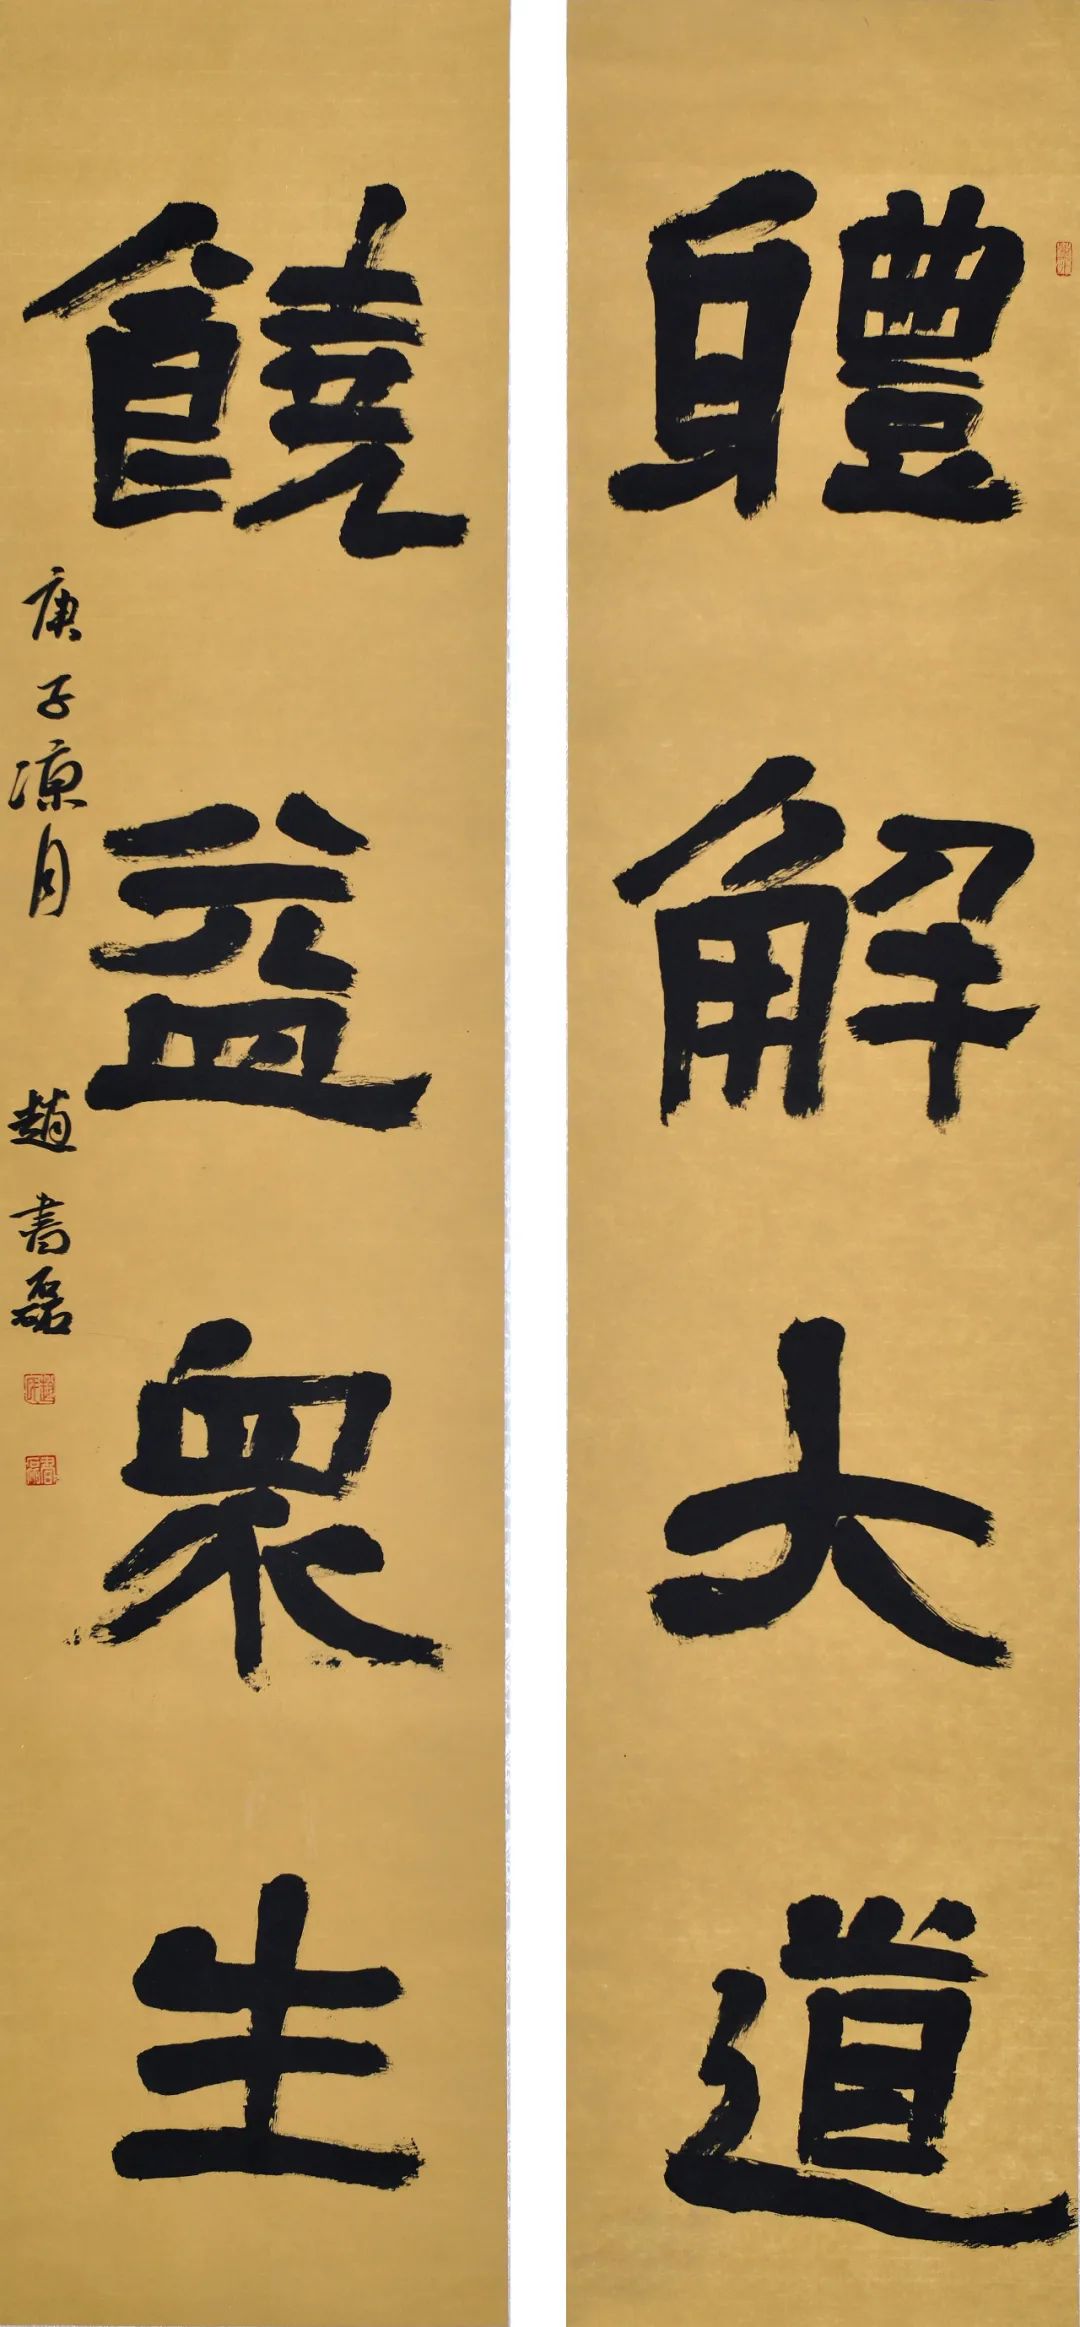 軆解大道
饒益眾生
庚子凉月 趙書磊